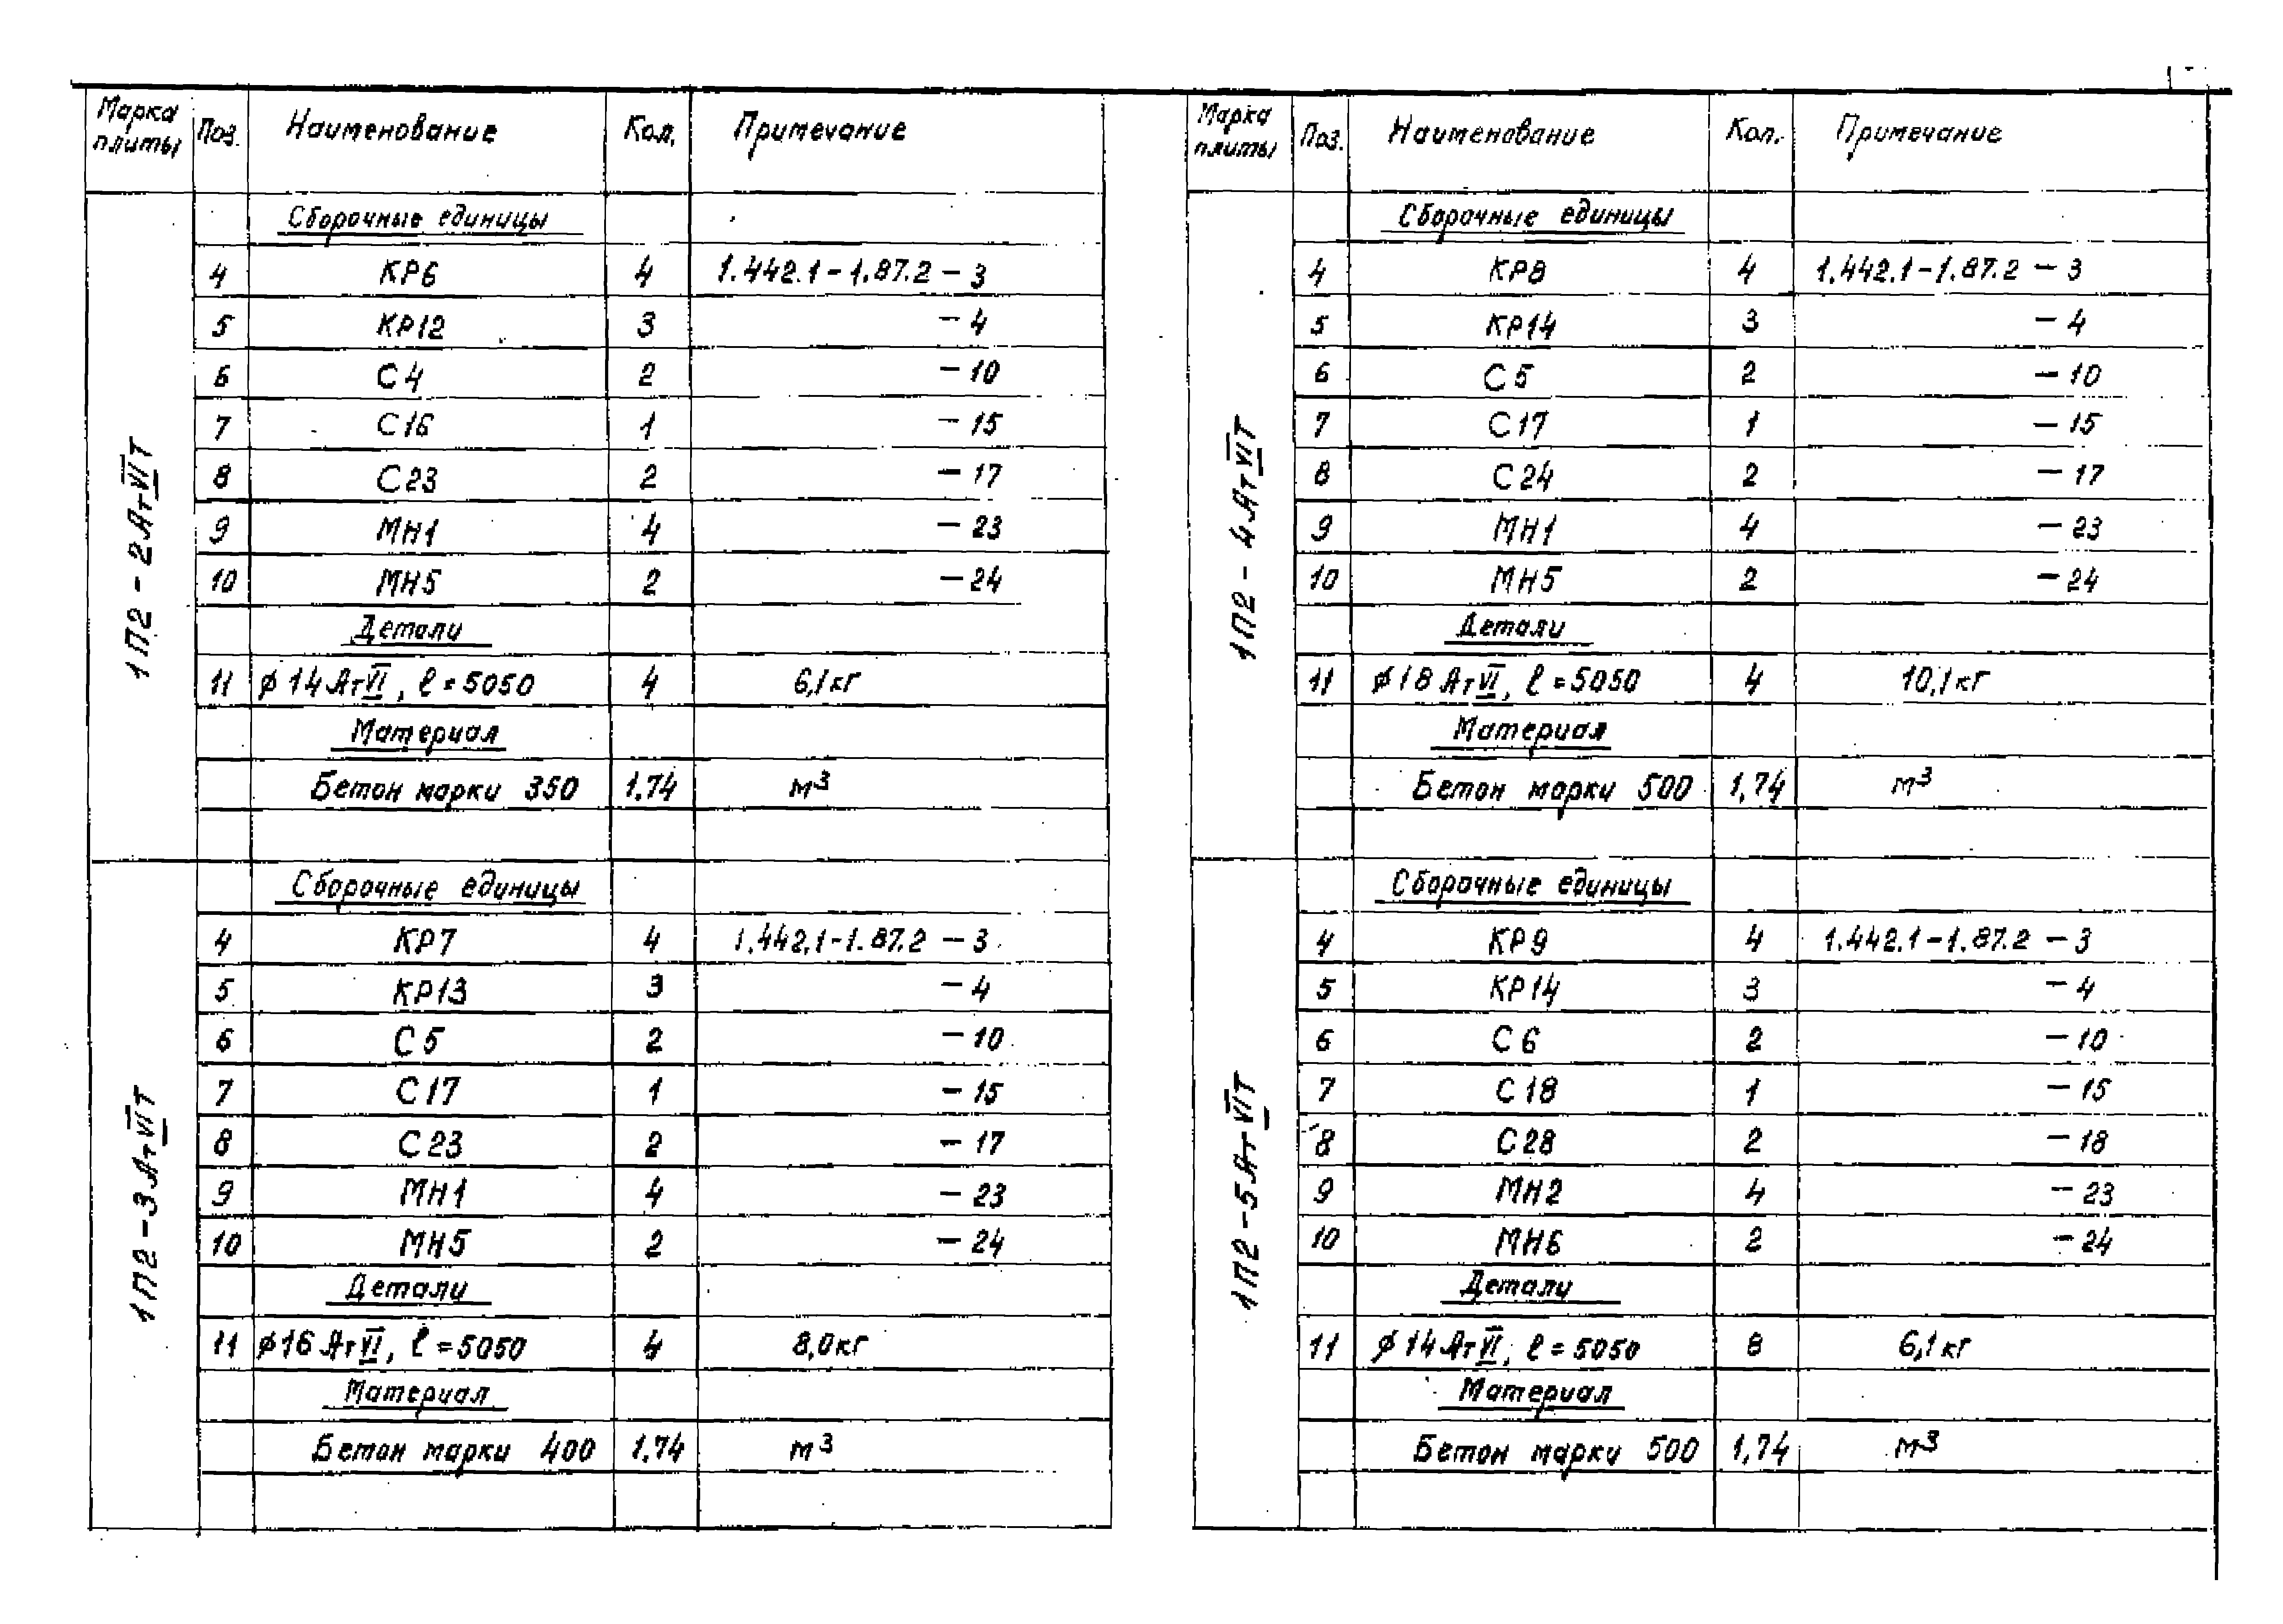 Марка плиты Поз. Наименование Кол. Примечание
1П2-2АтVIТ
Сборочные единицы
4 КР6 4 1.442.1-1.87.2 - 3
5 КР12 3 - 4
6 С4 2 - 10
7 С16 1 - 15
8 С23 2 - 17
9 МН1 4 - 23
10 МН5 2 - 24
Детали
11 ϕ14АтVI, ℓ=5050 4 6,1кг
Материал
Бетон марки 350 1.74 м³
1П2-3АтVIТ
Сборочные единицы
4 КР7 4 1.442.1-1.87.2 - 3
5 КР13 3 - 4
6 С5 2 - 10
7 С17 1 - 15
8 С23 2 - 17
9 МН1 4 - 23
10 МН5 2 - 24
Детали
11 ϕ16АтVI, ℓ=5050 4 8,0кг
Материал
Бетон марки 400 1.74 м³
Марка плиты Поз. Наименование Кол. Примечание
1П2-4АтVIТ
Сборочные единицы
4 КР8 4 1.442.1-1.87.2 - 3
5 КР14 3 - 4
6 С5 2 - 10
7 С17 1 - 15
8 С24 2 - 17
9 МН1 4 - 23
10 МН5 2 - 24
Детали
11 ϕ18АтVI, ℓ=5050 4 10,1кг
Материал
Бетон марки 500 1,74 м³
1П2-5АтVIТ
Сборочные единицы
4 КР9 4 1.442.1-1.87.2 - 3
5 КР14 3 - 4
6 С6 2 - 10
7 С18 1 - 15
8 С28 2 - 18
9 МН2 4 - 23
10 МН6 2 - 24
Детали
11 ϕ14АтVI, ℓ=5050 8 6,1кг
Материал
Бетон марки 500 1,74 м³